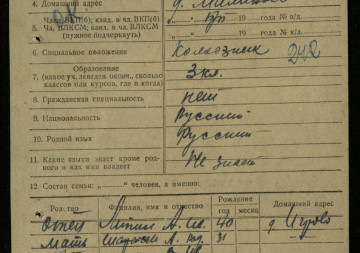 4. Домашний адрес
Член ВКП(б), канд. в чл. ВКП(б) б/п 19 года № п/д.
5. Чл. ВЛКСМ, канд. в чл. ВЛКСМ 19 года № п/д.
(нужное подчеркнуть)
6. Социальное положение Колхозник 242
Образование
7. (какое уч. заведен. оконч., сколько 3 кл.
классов или курсов, где и когда)
8. Гражданская специальность нет
9. Национальность Русский
10. Родной язык Русский
11. Какие языки знает кроме род-
ного и как ими владеет Не знает
12. Состав семьи: „ “ человек, а именно:
Родство Фамилия, имя и отчество Рождение Домашний адрес
год месяц
Отец А. Ив. 40 д.
Мать А. 31